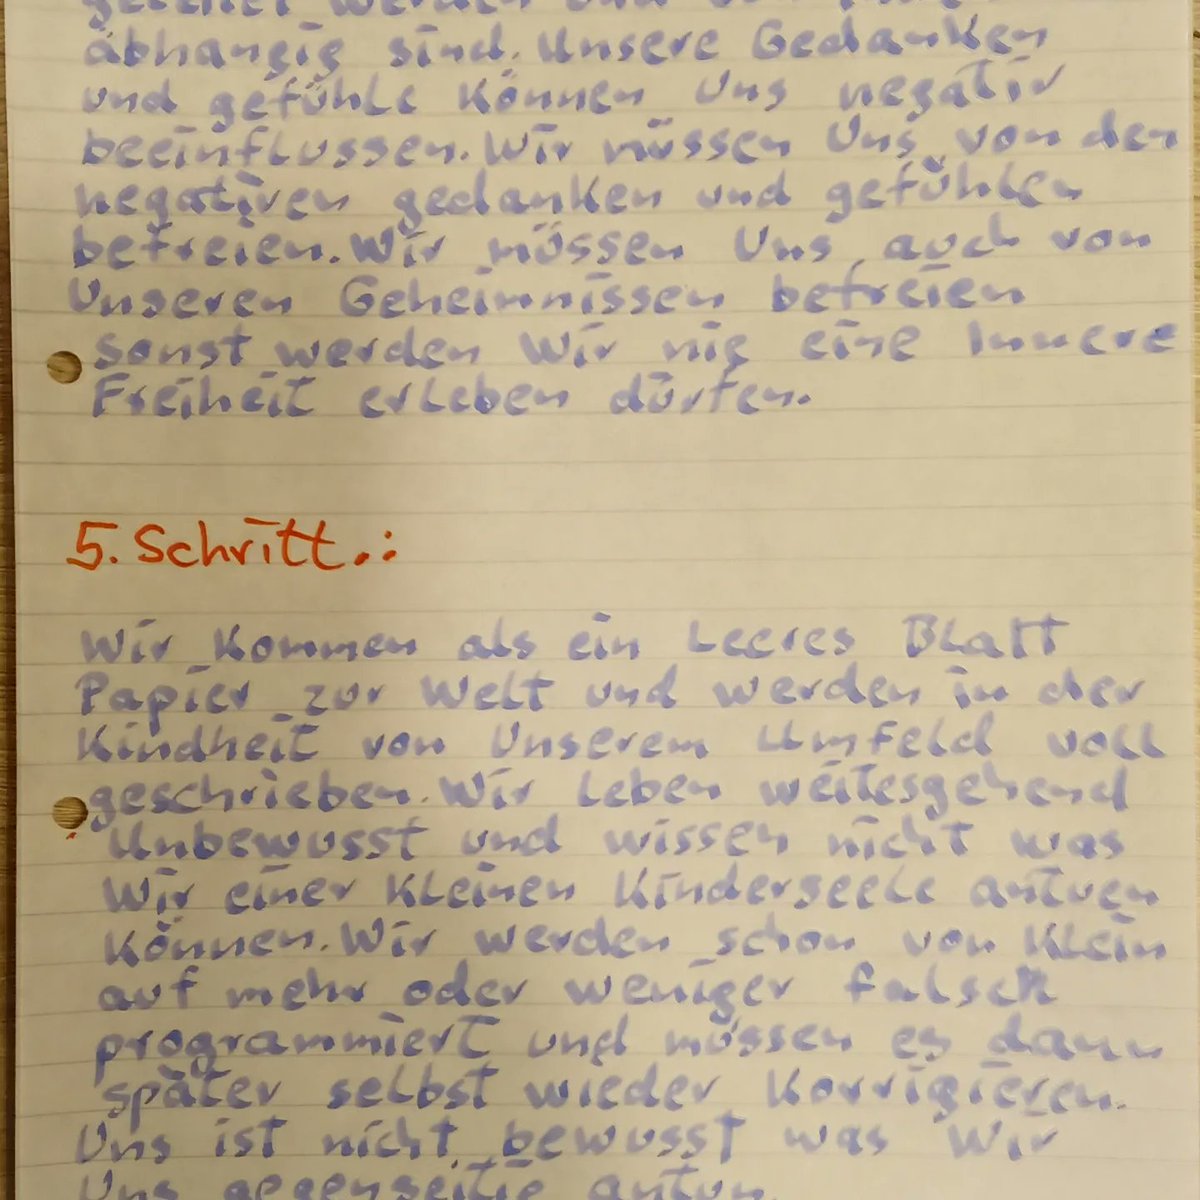 geleitet werden und von
abhängig sind. Unsere Gedanken
und gefühle können Uns negativ
beeinflussen. Wir müssen Uns von den
negativen gedanken und gefühlen
befreien. Wir müssen Uns auch von
Unseren Geheimnissen befreien
sonst werden Wir nie eine Innere
Freiheit erleben dürfen.
5. Schritt.:
Wir kommen als ein Leeres Blatt
Papier zur Welt und werden in der
Kindheit von Unserem Umfeld voll
geschrieben. Wir leben weitesgehend
Unbewusst und wissen nicht was
Wir einer Kleinen Kinderseele antuen
können. Wir werden schon von Klein
auf mehr oder weniger falsch
programmiert und müssen es dann
später selbst wieder Korrigieren.
Uns ist nicht bewusst was Wir
Uns gegenseitig antun.